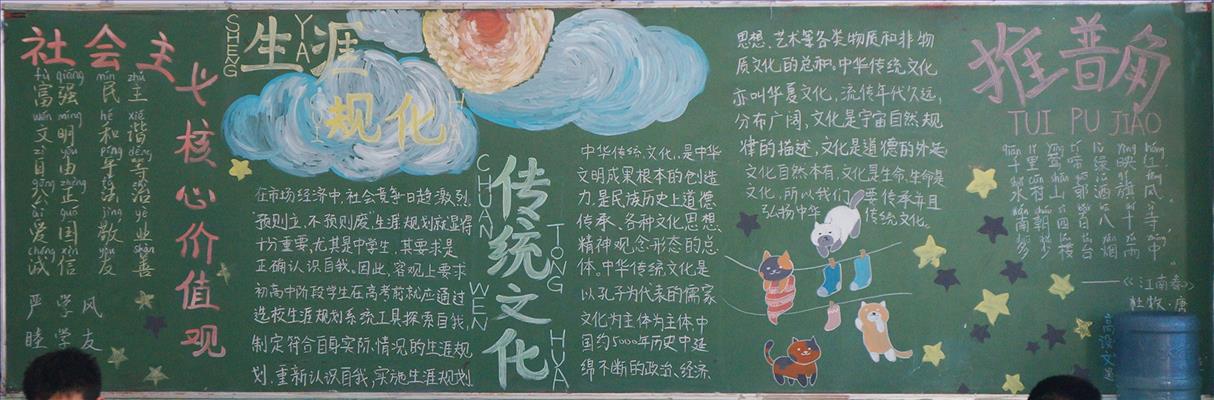 社会主义核心价值观
fù qiáng mín zhǔ
富强 民主
wén míng hé xié
文明 和谐
zì yóu píng děng
自由 平等
gōng zhèng fǎ zhì
公正 法治
ài guó jìng yè
爱国 敬业
诚信 友善
严学风
睦学友
SHENG YA
生涯
规化
在市场经济中,社会竞争日趋激烈,
"预则立、不预则废"生涯规划就显得
十分重要,尤其是中学生,其要求是
正确认识自我,因此,客观上要求
初高中阶段学生在高考前就应通过
选校生涯规划系统工具探索自我,
制定符合自身实际情况的生涯规
划,重新认识自我,实施生涯规划.
CHUAN TONG WEN HUA
传统文化
中华传统文化,是中华
文明成果根本的创造
力,是民族历史上道德
传承、各种文化思想、
精神观念形态的总
体。中华传统文化是
以孔子为代表的儒家
文化为主体为主体,中
国约5000年历史中延
绵不断的政治、经济、
思想、艺术等各类物质和非物
质文化的总和,中华传统文化
亦叫华夏文化,流传年代久远,
分布广阔,文化是宇宙自然规
律的描述,文化是道德的外延
文化自然本有,文化是生命,生命是
文化,所以我们要传承并且
弘扬中华传统文化。
推普角
TUI PU JIAO
千里莺啼绿映红
水村山郭酒旗风
南朝四百八十寺
多少楼台烟雨中
——《江南春》
杜牧·唐